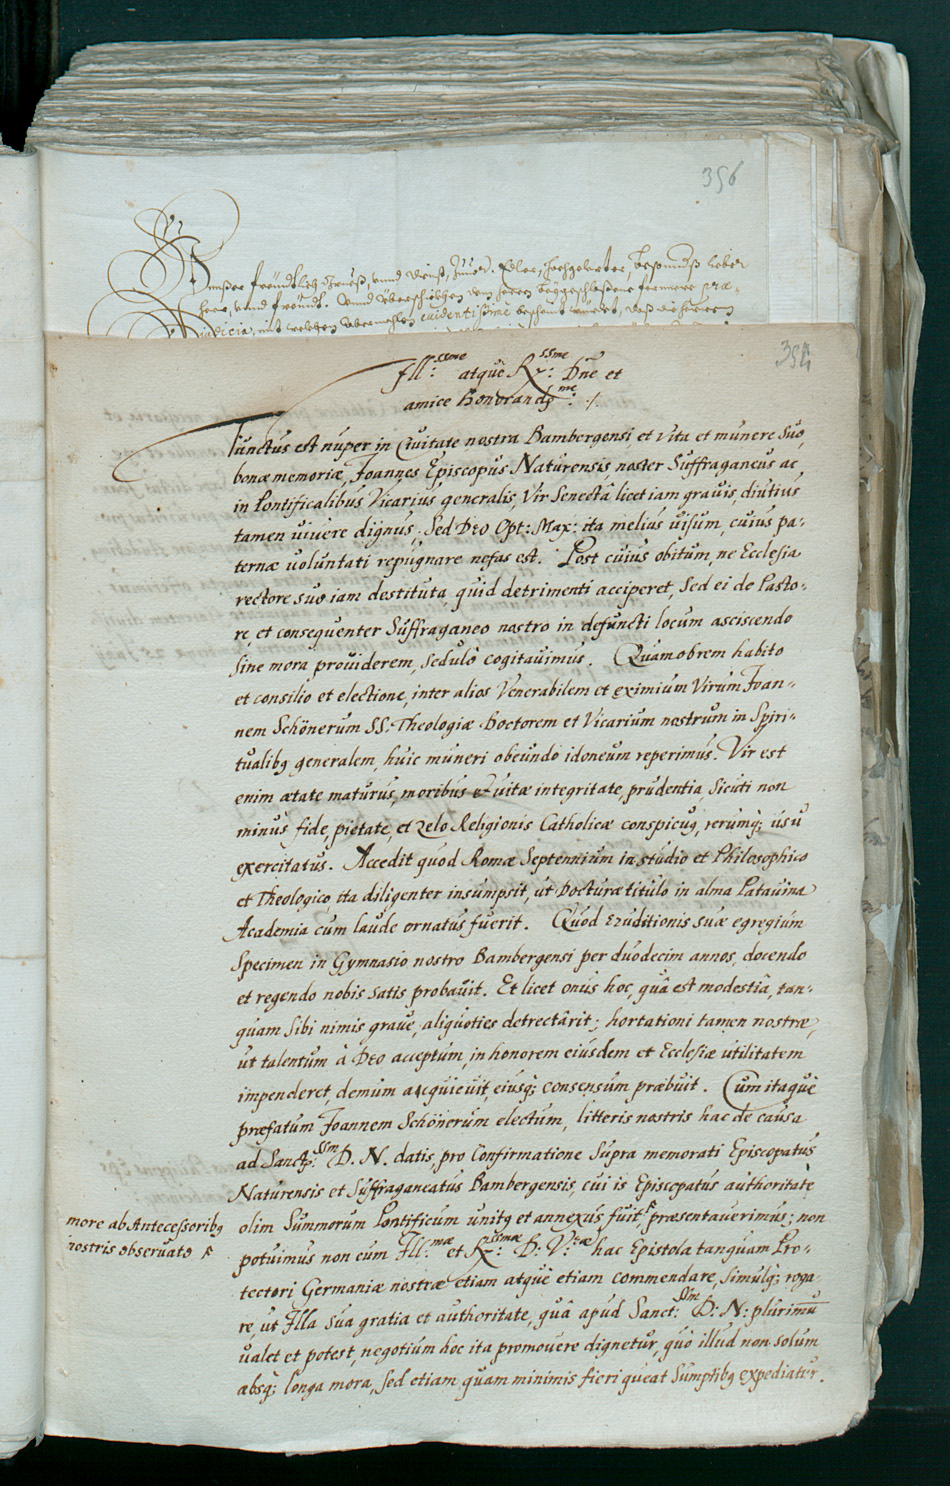 356
Unser freündtlich Grueß, unnd dienst, Zuuor. Edler, Hochgelerter, besonnder lieber
Herr, unnd Freündt.
evidentissime
354
Ill:ssme atquè R:ssme Dñe et
amice Honorandsme: ·/.
Functus est nuper in Ciuitate nostra Bambergensi et vita et munere suo,
bonæ memoriæ, Joannes Episcopus Naturensis noster Suffraganeus ac
in Pontificalibus Vicarius generalis, Vir Senectâ licet iam grauis, diutius
tamen uiuere dignus, Sed Deo Opt: Max: ita melius uisum, cuius pa-
ternæ voluntati repugnare nefas est. Post cuius obitum, ne Ecclesia
rectore suo iam destituta, quid detrimenti acciperet, Sed ei de Pasto-
re, et consequenter Suffraganeo nostro in defuncti locum asciscendo
sine mora prouiderem, sedulò cogitauimus. Quamobrem habito
et consilio et electione, inter alios Venerabilem et eximium Virum Joan-
nem Schönerum SS: Theologiæ Doctorem et Vicarium nostrum in Spiri-
tualibq generalem, huic muneri obeundo idoneum reperimus. Vir est
enim ætate maturus, moribus & uitæ integritate, prudentia, sicuti non
minus fide, pietate, et zelo Religionis Catholicæ conspicuq, rerumq; usu
exercitatus. Accedit quod Romæ Septennium in studio et Philosophico
et Theologico, ita diligenter insumpsit, ut Docturæ titulo in alma Patauina
Academia cum laude ornatus fuerit. Quod eruditionis suæ egregium
Specimen in Gymnasio nostro Bambergensi per duodecim annos, docendo
et regendo nobis satis probauit. Et licet onus hoc, quâ est modestiâ, tan-
quam sibi nimis graue, aliquoties detrectârit; hortationi tamen nostræ,
ut talentum à Deo acceptum, in honorem eiusdem et Ecclesiæ utilitatem
impenderet, demum acquieuit, eiusq; consensum præbuit. Cum itaquè
præfatum Joannem Schönerum electum, litteris nostris hac de causa
ad Sanct:ssm D. N. datis, pro Confirmatione supra memorati Episcopatus
Naturensis et Suffraganeatus Bambergensis, cui is Episcopatus authoritate
olim Summorum Pontificum unitq et annexus fuit, præsentauerimus; non
more ab Antecessoribq
nostris obseruato
potuimus non cum Ill:mæ et R:ssmæ D: V:ræ hac Epistola tanquam Pro-
tectori Germaniæ nostræ etiam atquè etiam commendare, simulq; roga-
re, ut Illa sua gratia et authoritate, quâ apud Sanct:ssm D: N: plurimū
ualet et potest, negotium hoc ita promouere dignetur, quò illud non solum
absq; longa mora, sed etiam quam minimis fieri queat sumptibq expediatur.